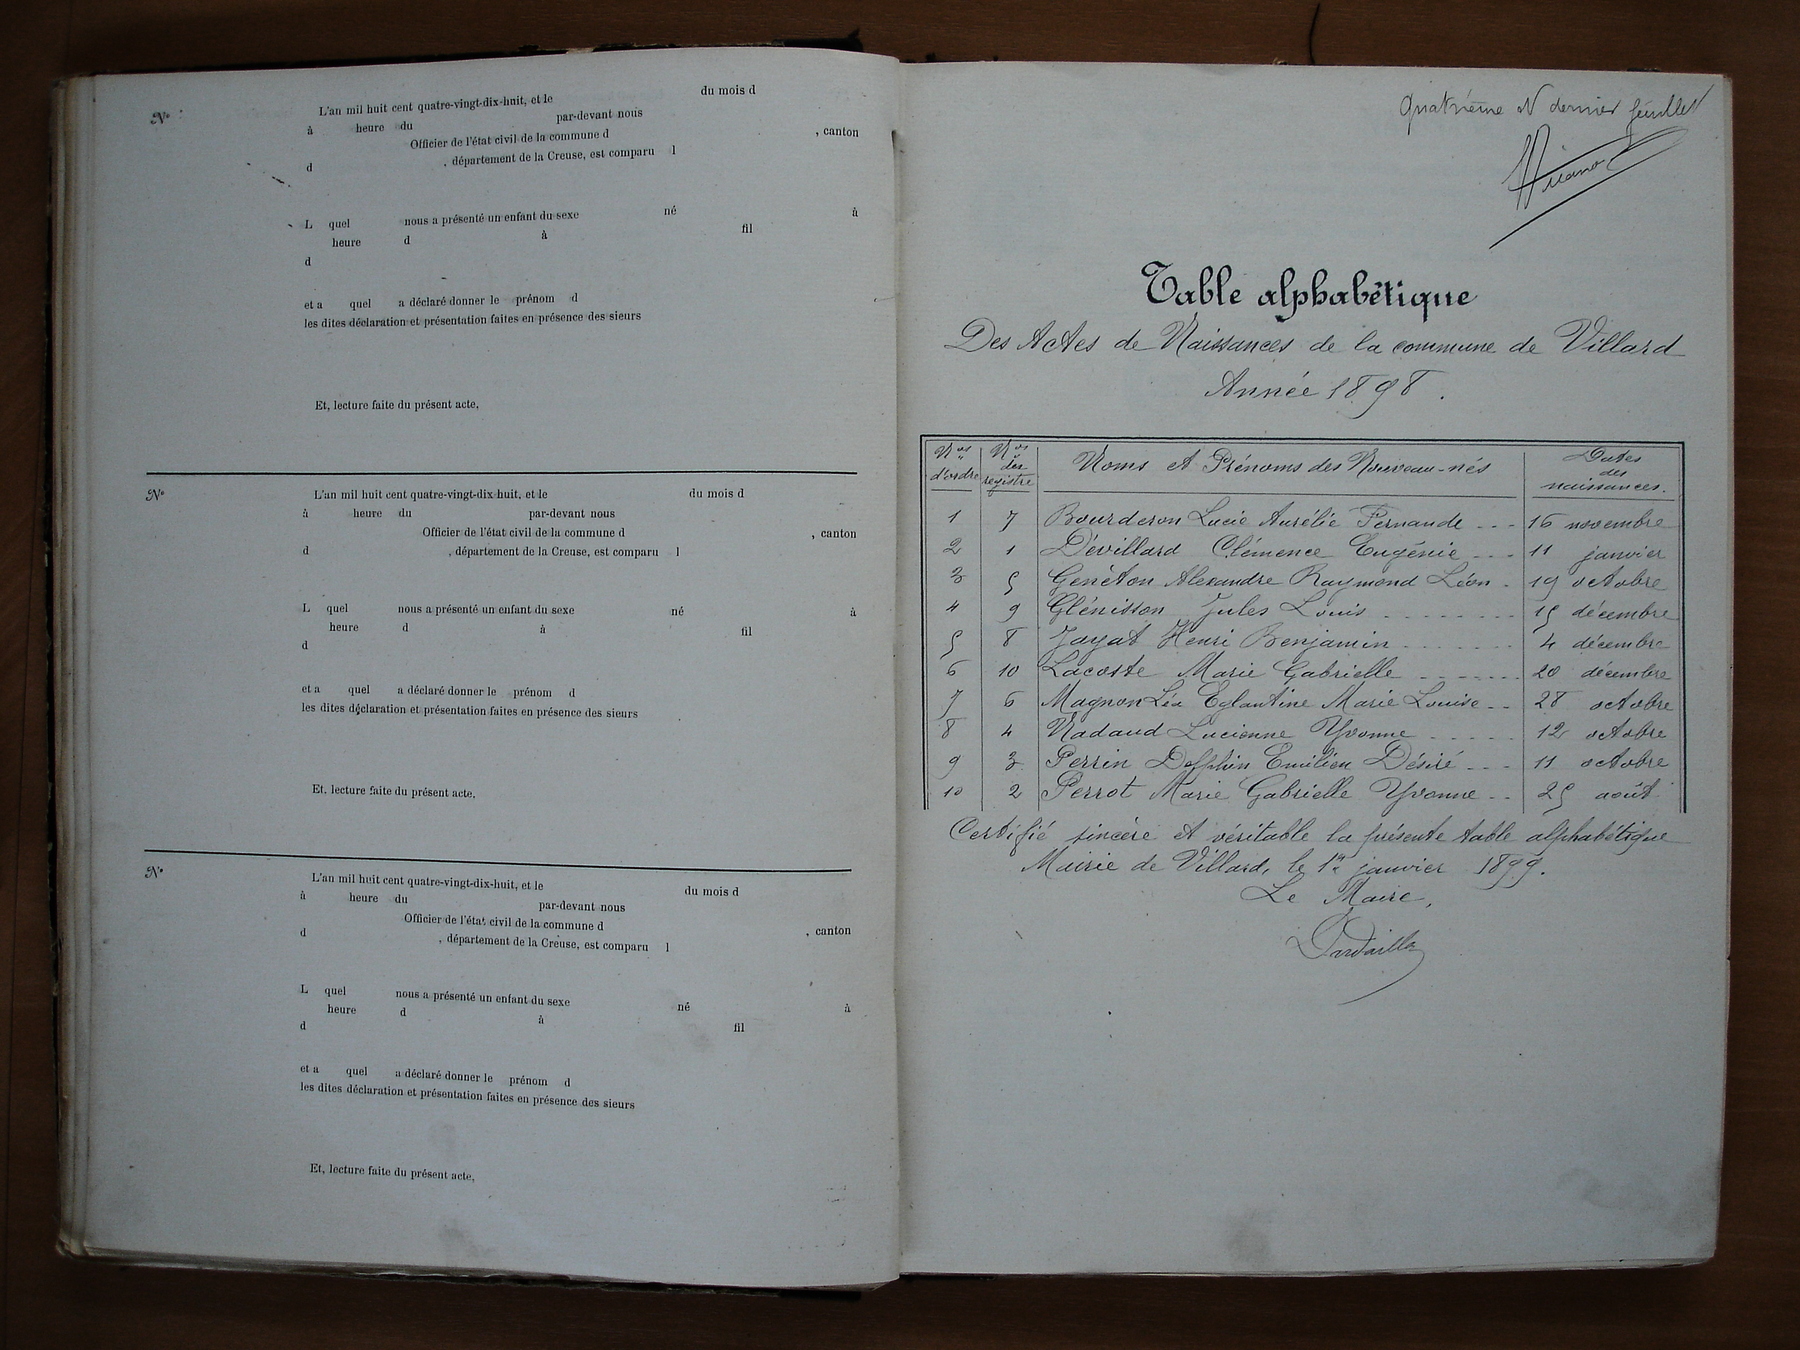 N° L'an mil huit cent quatre-vingt-dix-huit, et le du mois d
à heure du par-devant nous
Officier de l'état civil de la commune d , canton
d , département de la Creuse, est comparu l
L quel nous a présenté un enfant du sexe né à
heure d à fil
d
et a quel a déclaré donner le prénom d
les dites déclaration et présentation faites en présence des sieurs
Et, lecture faite du présent acte,
N° L'an mil huit cent quatre-vingt-dix-huit, et le du mois d
à heure du par-devant nous
Officier de l'état civil de la commune d , canton
d , département de la Creuse, est comparu l
L quel nous a présenté un enfant du sexe né à
heure d à fil
d
et a quel a déclaré donner le prénom d
les dites déclaration et présentation faites en présence des sieurs
Et, lecture faite du présent acte,
N° L'an mil huit cent quatre-vingt-dix-huit, et le du mois d
à heure du par-devant nous
Officier de l'état civil de la commune d , canton
d , département de la Creuse, est comparu l
L quel nous a présenté un enfant du sexe né à
heure d à fil
d
et a quel a déclaré donner le prénom d
les dites déclaration et présentation faites en présence des sieurs
Et, lecture faite du présent acte,
Quatrième et dernier feuillet
Table alphabétique
Des Actes de Naissances de la commune de Villard
Année 1898.
Nos d'ordre Nos des registre Noms et Prénoms des Nouveau-nés Dates des naissances.
1 7 Bourderon Lucie Aurélie Fernande - - - 16 novembre
2 1 Dévillard Clémence Eugénie - - - 11 janvier
3 5 Genéton Alexandre Raymond Léon - 19 octobre
4 9 Glénisson Jules Louis - - - - - - - 15 décembre
5 8 Jayat Henri Benjamin - - - - - - - 4 décembre
6 10 Lacoste Marie Gabrielle - - - - - - 20 décembre
7 6 Magnon Léa Eglantine Marie Louise - - 28 octobre
8 4 Nadaud Lucienne Yvonne - - - - - 12 octobre
9 3 Perrin Delphin Emilien Désiré - - - 11 octobre
10 2 Perrot Marie Gabrielle Yvonne - - 25 août
Certifié sincère et véritable la présente table alphabétique
Mairie de Villard, le 1er janvier 1899.
Le Maire,